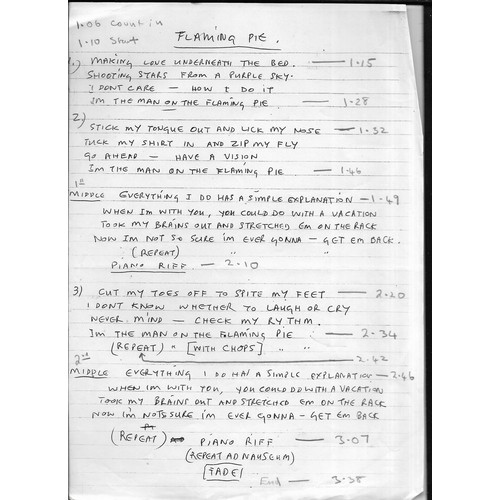 1.06 Count in
1.10 Start
FLAMING PIE.
1.) MAKING LOVE UNDERNEATH THE BED. — 1.15
SHOOTING STARS FROM A PURPLE SKY.
I DONT CARE — HOW I DO IT
IM THE MAN ON THE FLAMING PIE. — 1.28
2) STICK MY TONGUE OUT AND LICK MY NOSE — 1.32
TUCK MY SHIRT IN AND ZIP MY FLY
GO AHEAD — HAVE A VISION
IM THE MAN ON THE FLAMING PIE. — 1.46
1st
MIDDLE EVERYTHING I DO HAS A SIMPLE EXPLANATION — 1.49
WHEN IM WITH YOU, YOU COULD DO WITH A VACATION
TOOK MY BRAINS OUT AND STRETCHED EM ON THE RACK
NOW IM NOT SO SURE IM EVER GONNA — GET EM BACK.
(REPEAT) " "
PIANO RIFF — 2.10
3) CUT MY TOES OFF TO SPITE MY FEET — 2.20
I DONT KNOW WHETHER TO LAUGH OR CRY
NEVER MIND — CHECK MY RYTHM.
IM THE MAN ON THE FLAMING PIE — 2.34
(REPEAT) " [WITH CHOPS] " "
2.42
2nd
MIDDLE EVERYTHING I DO HAS A SIMPLE EXPLANATION — 2.46
WHEN IM WITH YOU, YOU COULD DO WITH A VACATION
TOOK MY BRAINS OUT AND STRETCHED EM ON THE RACK
NOW I'M NOT SURE I'M EVER GONNA — GET EM BACK
(REPEAT) PIANO RIFF — 3.07
(REPEAT AD NAUSEUM)
[FADE]
End — 3.38